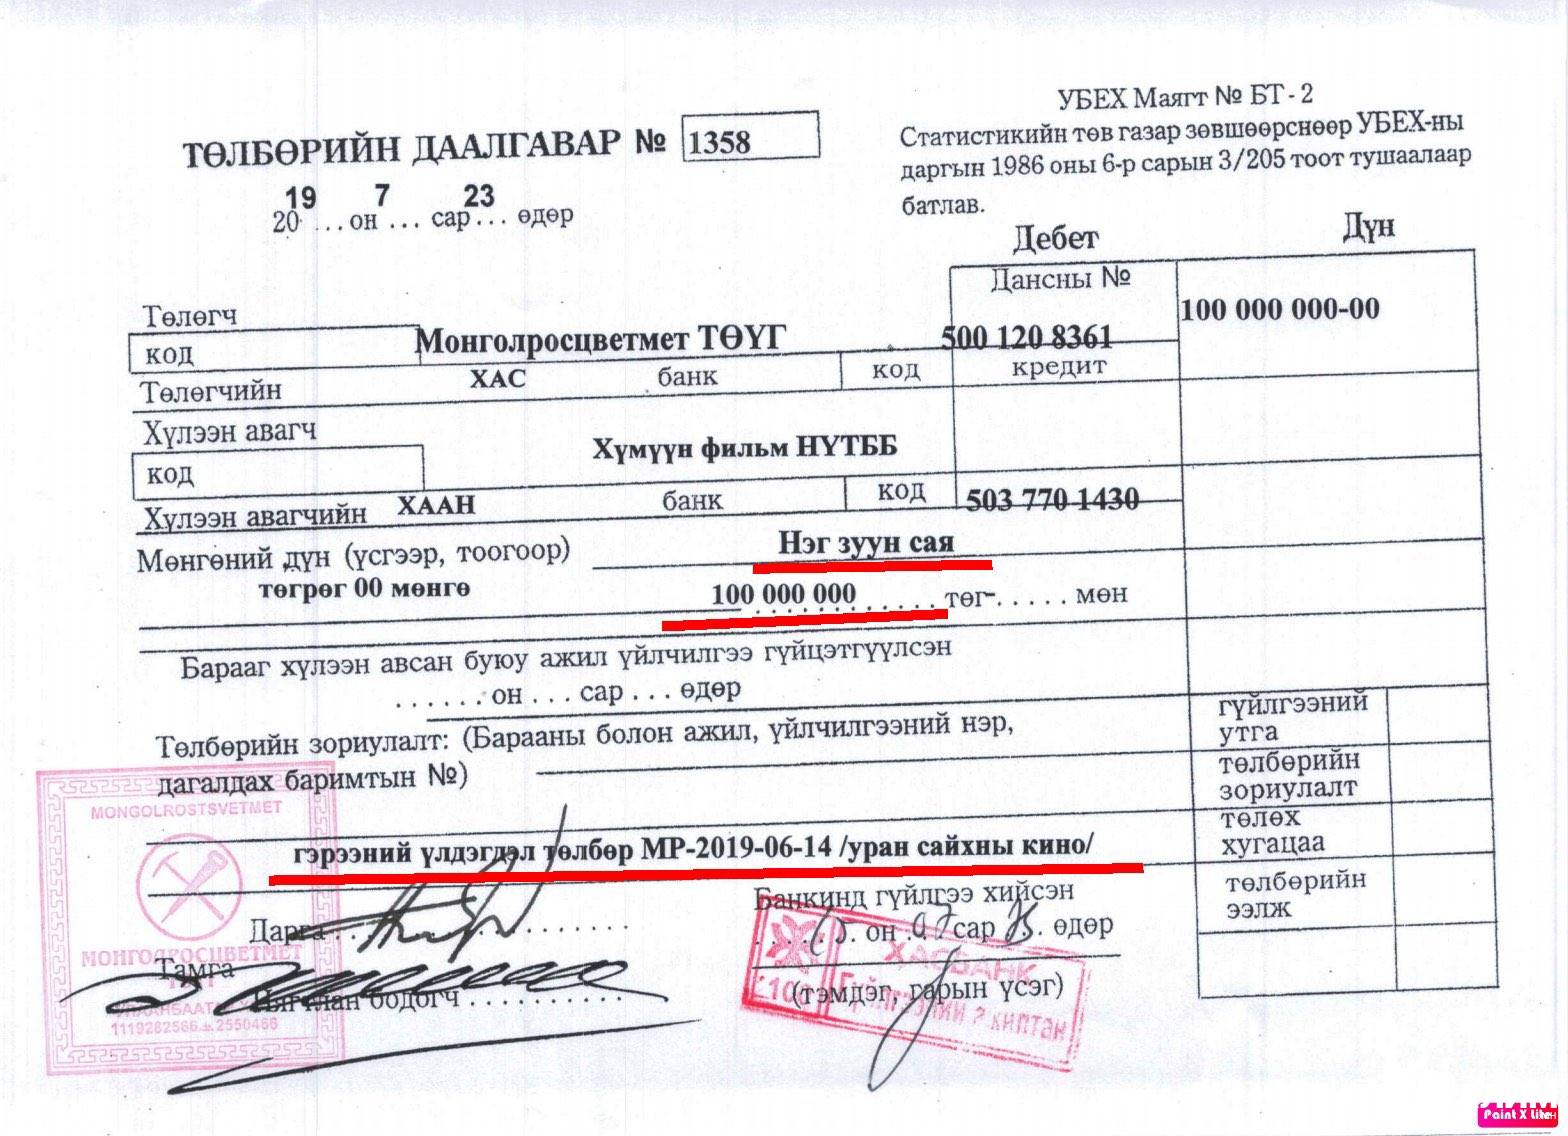 УБЕХ Маягт № БТ - 2
Статистикийн төв газар зөвшөөрснөөр УБЕХ-ны
даргын 1986 оны 6-р сарын 3/205 тоот тушаалаар
батлав.
ТӨЛБӨРИЙН ДААЛГАВАР № 1358
19 7 23
20 ...он ... сар ... өдөр
Дебет Дүн
Дансны №
100 000 000-00
Төлөгч
код
Монголросцветмет ТӨҮГ 500 120 8361
Төлөгчийн ХАС банк код кредит
Хүлээн авагч
код
Хүмүүн фильм НҮТББ
Хүлээн авагчийн ХААН банк код 503 770 1430
Мөнгөний дүн (үсгээр, тоогоор) Нэг зуун сая
төгрөг 00 мөнгө 100 000 000 ............ төг-..... мөн
Барааг хүлээн авсан буюу ажил үйлчилгээ гүйцэтгүүлсэн
...... он ... сар ... өдөр
Төлбөрийн зориулалт: (Барааны болон ажил, үйлчилгээний нэр,
дагалдах баримтын №)
гүйлгээний
утга
төлбөрийн
зориулалт
төлөх
хугацаа
төлбөрийн
ээлж
гэрээний үлдэгдэл төлбөр МР-2019-06-14 /уран сайхны кино/
MONGOLROSTSVETMET
МОНГОЛРОСЦВЕТМЕТ
Дарга
Тамга
Нягтлан бодогч
Банкинд гүйлгээ хийсэн
он 07 сар өдөр
(тэмдэг, гарын үсэг)
ХАСБАНК
100
Paint X Lite